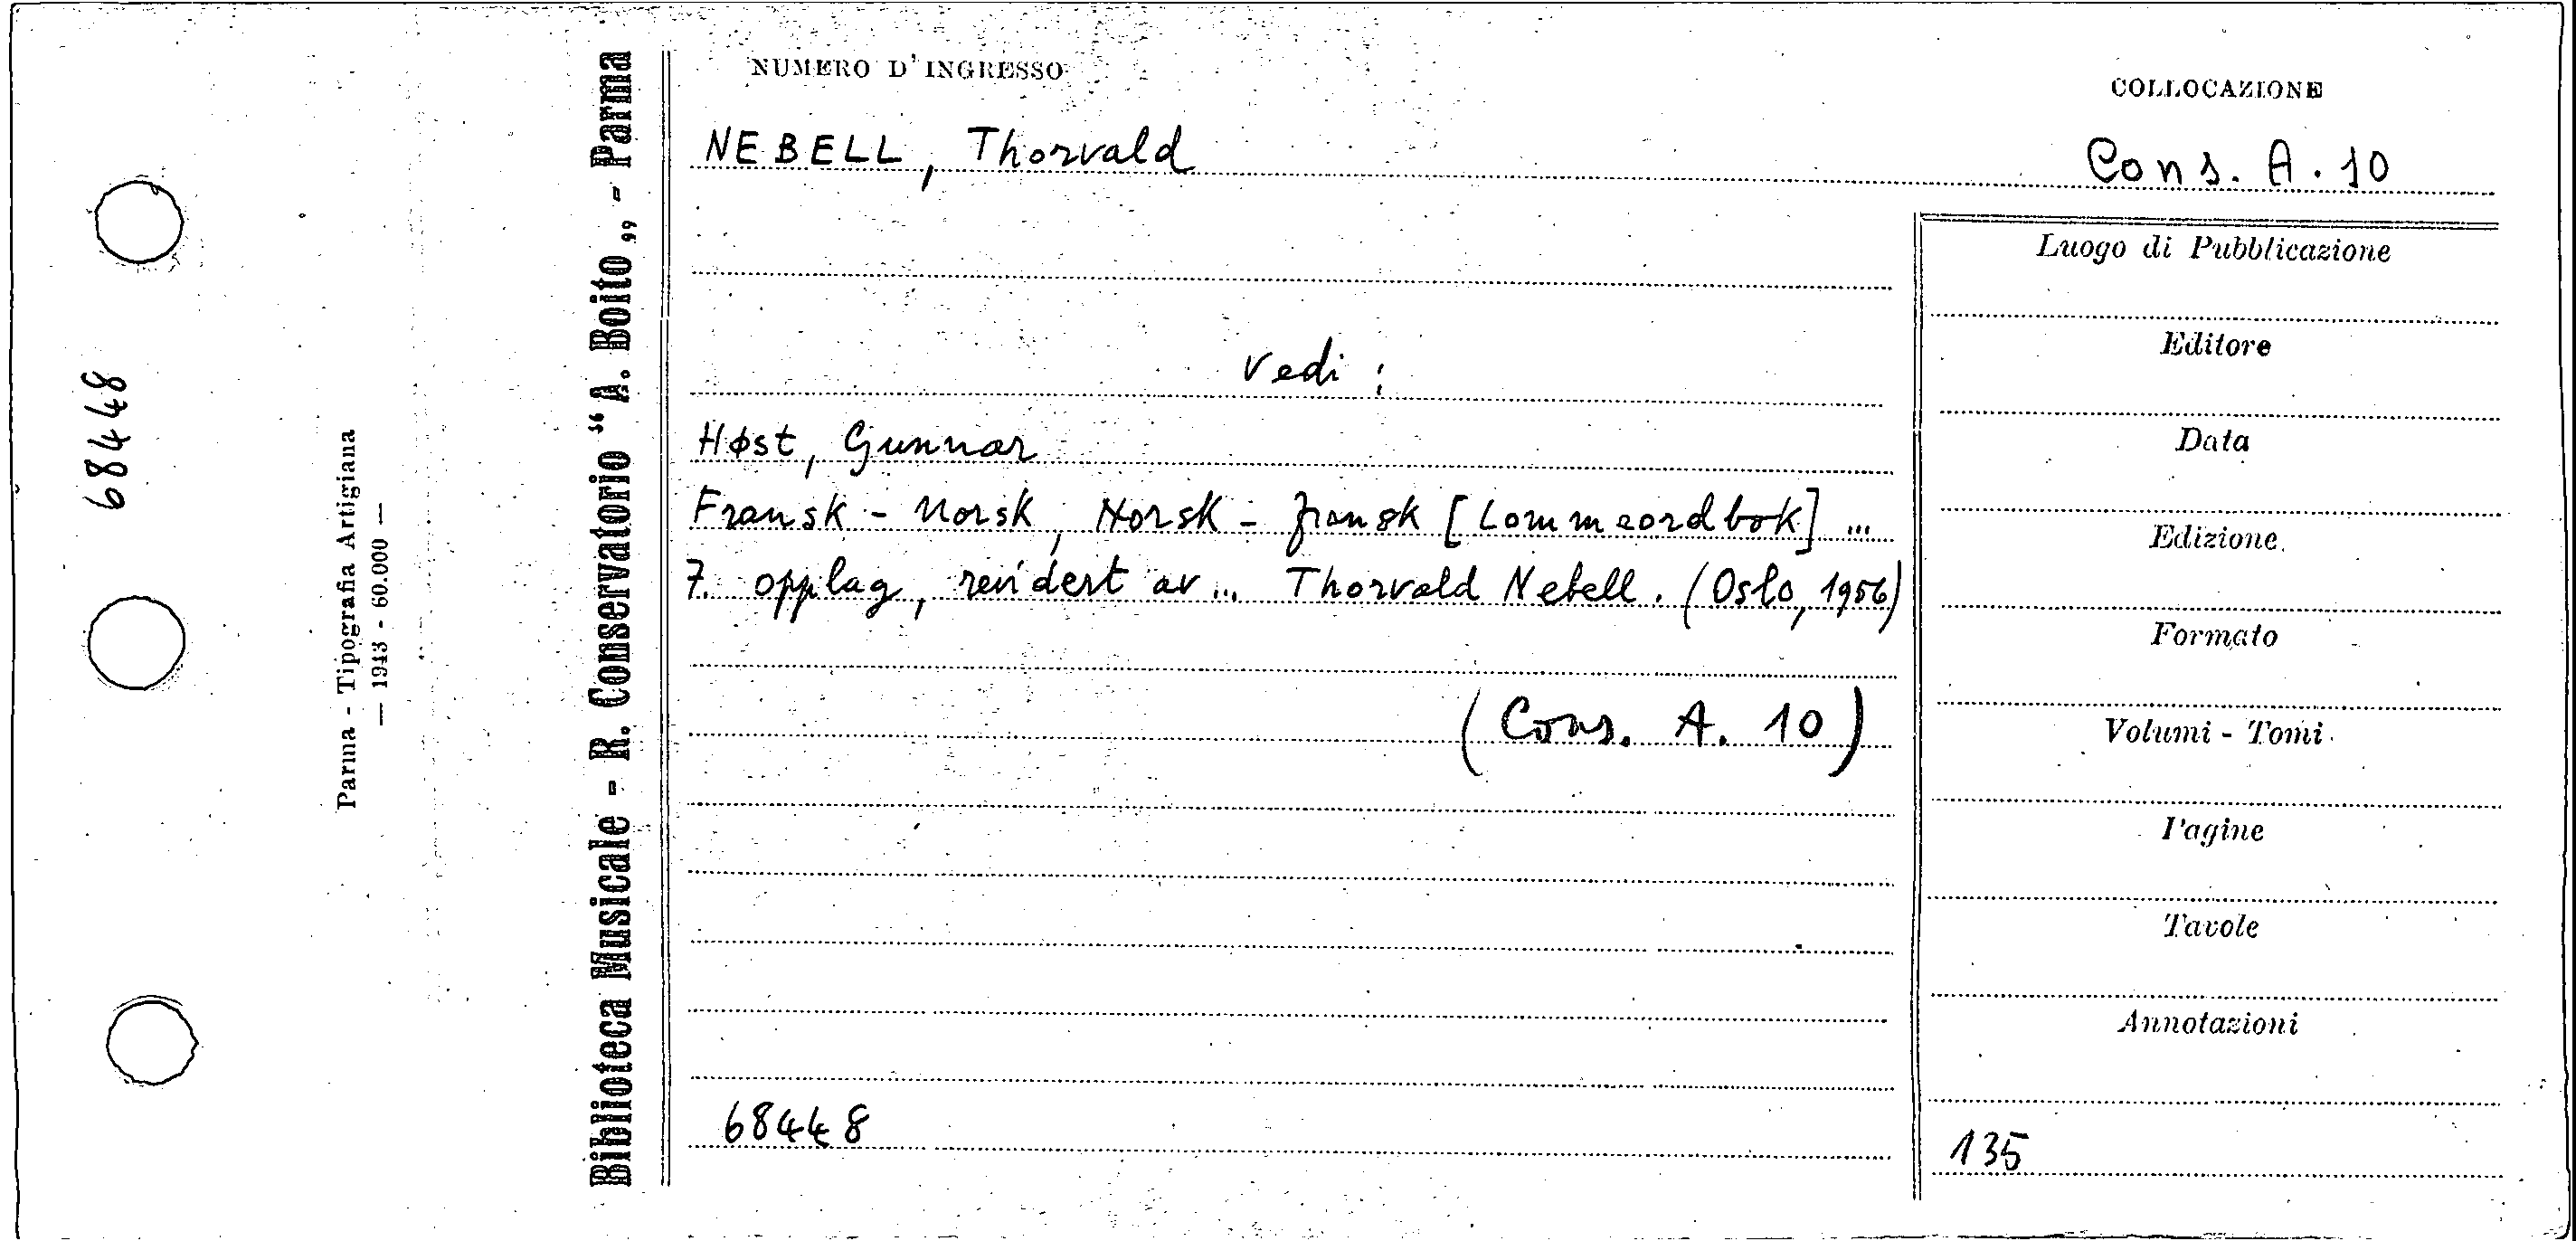 68448
Parma - Tipografia Artigiana
— 1943 - 60.000 —
Biblioteca Musicale - R. Conservatorio “A. Boito„ - Parma
NUMERO D'INGRESSO
COLLOCAZIONE
NEBELL, Thorvald
Cons. A. 10
vedi :
Høst, Gunnar
Fransk - Norsk, Norsk - fransk [Lommeordbok] ...
7. opplag, revidert av ... Thorvald Nebell. (Oslo, 1956)
(Cons. A. 10)
68448
Luogo di Pubblicazione
Editore
Data
Edizione
Formato
Volumi - Tomi
Pagine
Tavole
Annotazioni
135